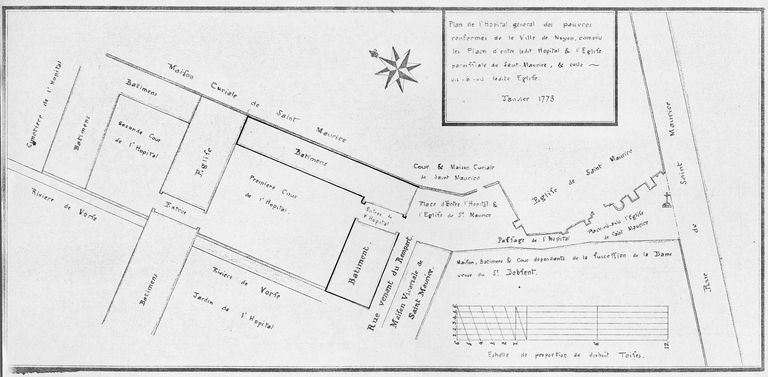 Plan de l'Hopital general des pauvres
renfermes de la Ville de Noyon, compris
les Place d'entre ledit Hopital & l'Eglise
paroissiale de Saint-Maurice, & celle
vis-à-vis ladite Eglise.
Janvier 1773
Cymetiere de l'Hopital
Batiment
Batimens
Maison Curiale de Saint Maurice
Seconde Cour
de l'Hopital
Eglise
Batimens
Premiere Cour
de l'Hopital.
Entrée
Riviere de Vorse
Batimens
Riviere de Vorse
Jardin de l'Hopital
Cour & Maison Curiale
de Saint Maurice
Entrée de
l'Hopital
Place d'Entre l'Hopital &
l'Eglise de St. Maurice
Batiment.
Rue venant du Rempart.
Maison Vicariale de
Saint Maurice.
Eglise de Saint Maurice
Place vis-à-vis l'Eglise
de Saint Maurice
Passage de l'hopital
Rue de Saint Maurice
Maison, Batimens & Cour dependants de la succession de la Dame
veuve du Sr.
6 5 4 3 2 1
6 12
Echelle de proportion de dixhuit Toises.